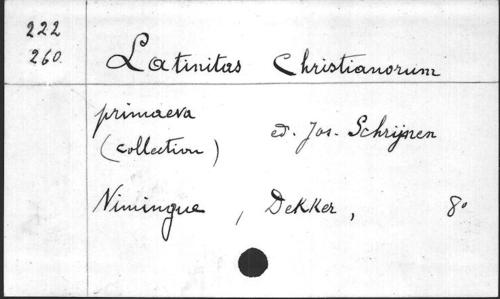 222
260. Latinitas Christianorum
primaeva
(collection) ed. Jos. Schrijnen
Nimingue, Dekker, 8°